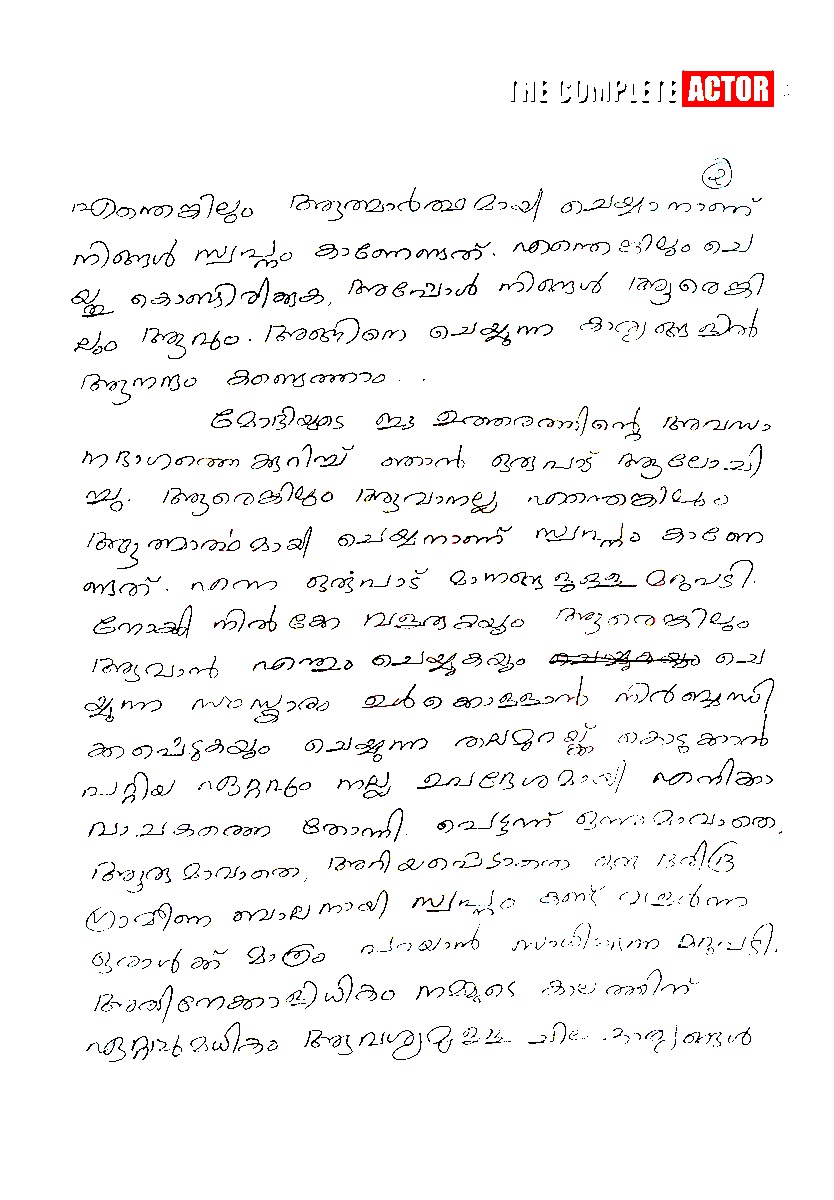 THE COMPLETE ACTOR
2
എന്തെങ്കിലും ആത്മാർത്ഥമായി ചെയ്യാനാണ്
നിങ്ങൾ സ്വപ്നം കാണേണ്ടത്. എന്തെങ്കിലും ചെ
യ്തു കൊണ്ടിരിക്കുക, അപ്പോൾ നിങ്ങൾ ആരെങ്കി
ലും ആവും. അങ്ങിനെ ചെയ്യുന്ന കാര്യങ്ങളിൽ
ആനന്ദം കണ്ടെത്താം . .
മോദിയുടെ ഈ ഉത്തരത്തിന്റെ അവസാ
നഭാഗത്തെക്കുറിച്ച് ഞാൻ ഒരുപാട് ആലോചി
ച്ചു. ആരെങ്കിലും ആവാനല്ല എന്തെങ്കിലും
ആത്മാർത്ഥമായി ചെയ്യനാണ് സ്വപ്നം കാണേ
ണ്ടത്. എന്ന ഒരുപാട് മാനങ്ങളുള്ള മറുപടി.
നോക്കി നിൽക്കേ വളരുകയും ആരെങ്കിലും
ആവാൻ എന്തും ചെയ്യുകയും ചെയ്യുകയും ചെ
യ്യുന്ന സംസ്ക്കാരം ഉൾക്കൊള്ളാൻ നിർബ്ബന്ധി
ക്കപ്പെടുകയും ചെയ്യുന്ന തലമുറയ്ക്ക് കൊടുക്കാൻ
പറ്റിയ ഏറ്റവും നല്ല ഉപദേശമായി എനിക്കാ
വാചകത്തെ തോന്നി. പെട്ടന്ന് ഒന്നുമാവാതെ,
ആരുമാവാതെ, അറിയപ്പെടാത്ത ഒരു ദരിദ്ര
ഗ്രാമീണ ബാലനായി സ്വപ്നം കണ്ട് വളർന്ന
ഒരാൾക്ക് മാത്രം പറയാൻ സാധിക്കുന്ന മറുപടി.
അതിനേക്കാളധികം നമ്മുടെ കാലത്തിന്
ഏറ്റവുമധികം ആവശ്യമുള്ള ചില കാര്യങ്ങൾ